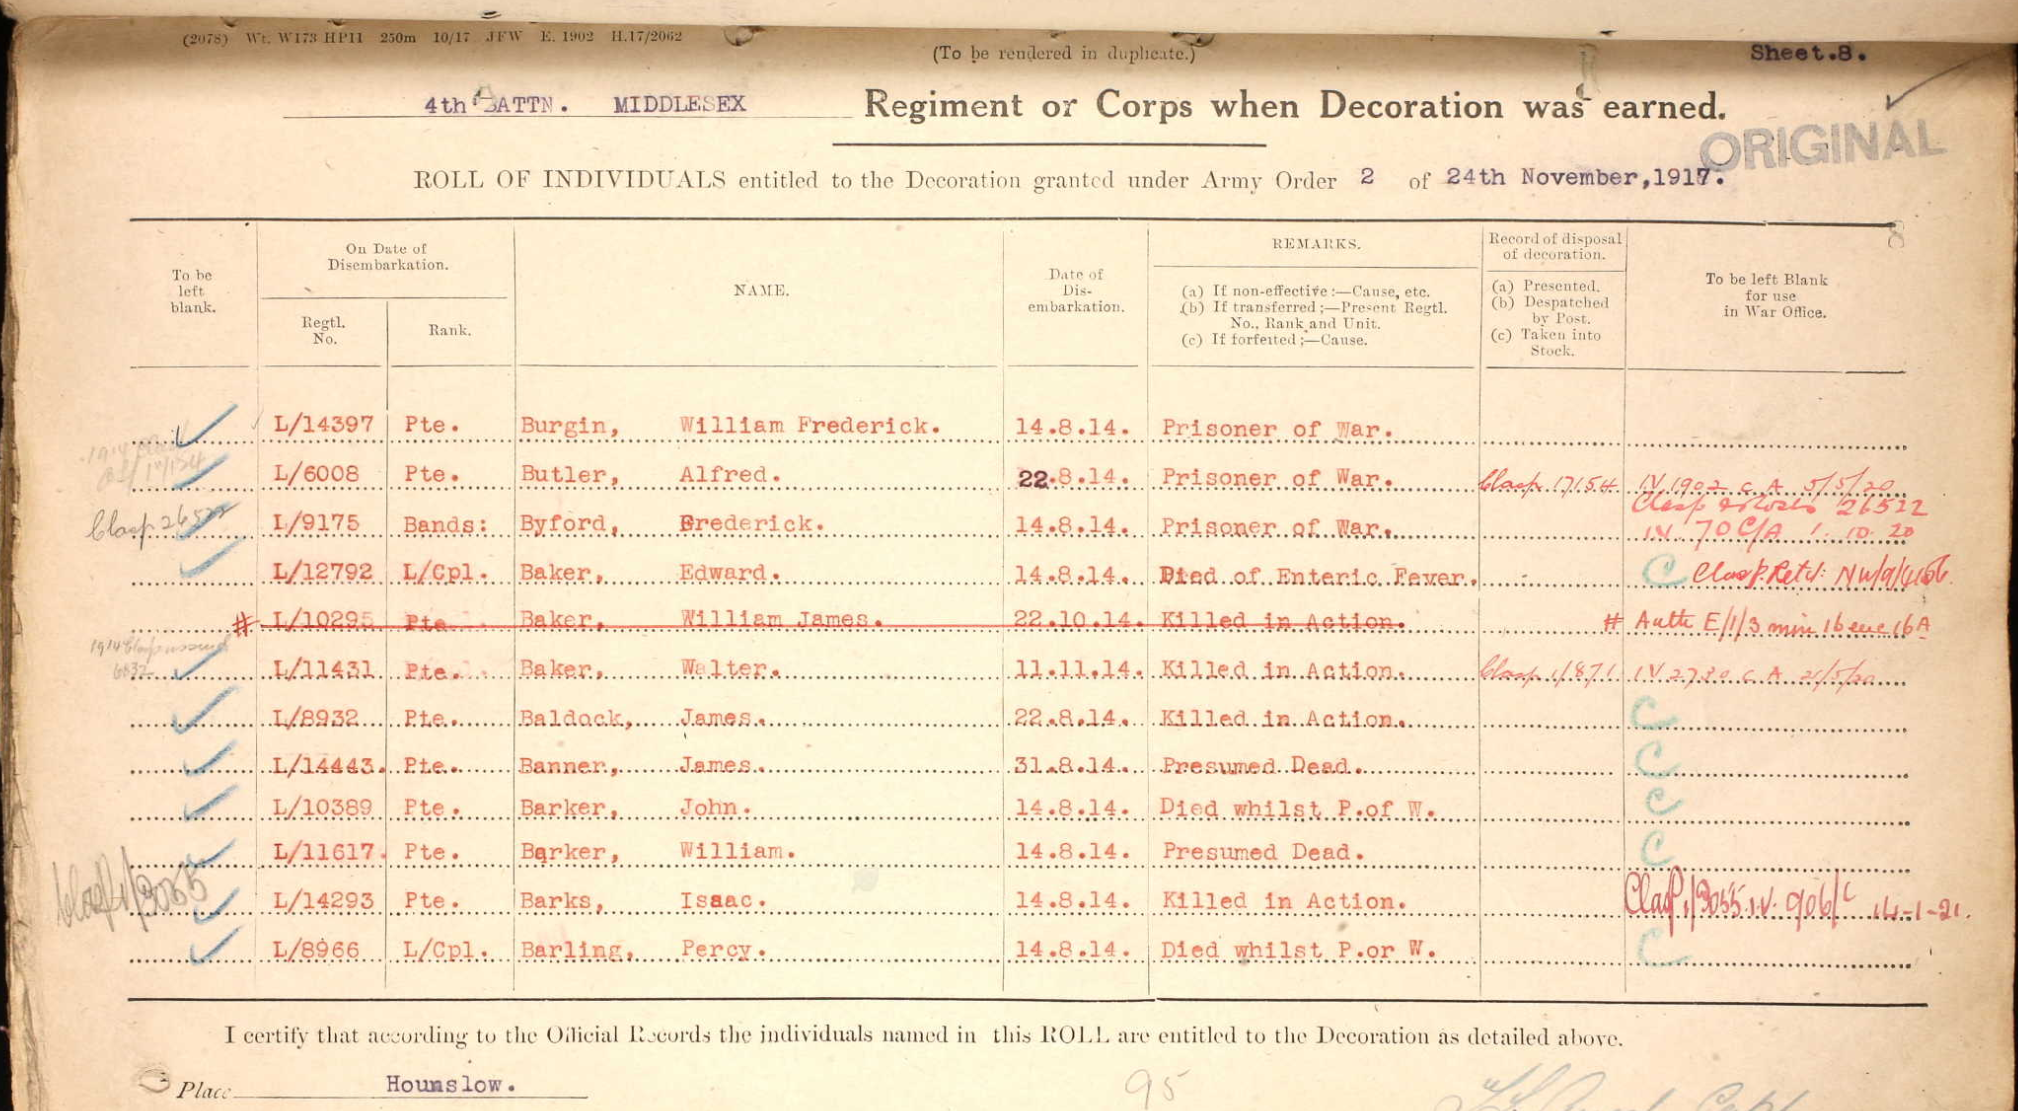 (2078) Wt. W173 HP11 250m 10/17 JFW E. 1902 H.17/2062
(To be rendered in duplicate.)
Sheet.8.
4th BATTN. MIDDLESEX Regiment or Corps when Decoration was earned.
ORIGINAL
ROLL OF INDIVIDUALS entitled to the Decoration granted under Army Order 2 of 24th November,1917.
8
To be left blank.
On Date of Disembarkation.
Regtl. No.
Rank.
NAME.
Date of Dis-embarkation.
REMARKS.
(a) If non-effective:—Cause, etc.
(b) If transferred;—Present Regtl. No., Rank and Unit.
(c) If forfeited;—Cause.
Record of disposal of decoration.
(a) Presented.
(b) Despatched by Post.
(c) Taken into Stock.
To be left Blank for use in War Office.
L/14397 Pte. Burgin, William Frederick. 14.8.14. Prisoner of War.
L/6008 Pte. Butler, Alfred. 22.8.14. Prisoner of War. Clasp 17154 IV 1902 C A 5/5/20
Clasp 26522 L/9175 Bands: Byford, Frederick. 14.8.14. Prisoner of War. Clasp 26522
IV 70 C/A 1.10.20
L/12792 L/Cpl. Baker, Edward. 14.8.14. Died of Enteric Fever. C Clasp Retd:
# L/10295 Pte Baker, William James. 22.10.14. Killed in Action. # Auth E/1/3 min 16 enc 16A
L/11431 Pte. Baker, Walter. 11.11.14. Killed in Action. Clasp 1/871 IV 2730 C A
L/8932 Pte. Baldock, James. 22.8.14. Killed in Action. C
L/14443. Pte. Banner, James. 31.8.14. Presumed Dead. C
L/10389 Pte. Barker, John. 14.8.14. Died whilst P.of W. C
L/11617. Pte. Barker, William. 14.8.14. Presumed Dead. C
Clasp 1/3055 L/14293 Pte. Barks, Isaac. 14.8.14. Killed in Action. Clasp 1/3055 IV 906/C 14-1-21.
L/8966 L/Cpl. Barling, Percy. 14.8.14. Died whilst P.or W. C
I certify that according to the Official Records the individuals named in this ROLL are entitled to the Decoration as detailed above.
Place Hounslow.
95